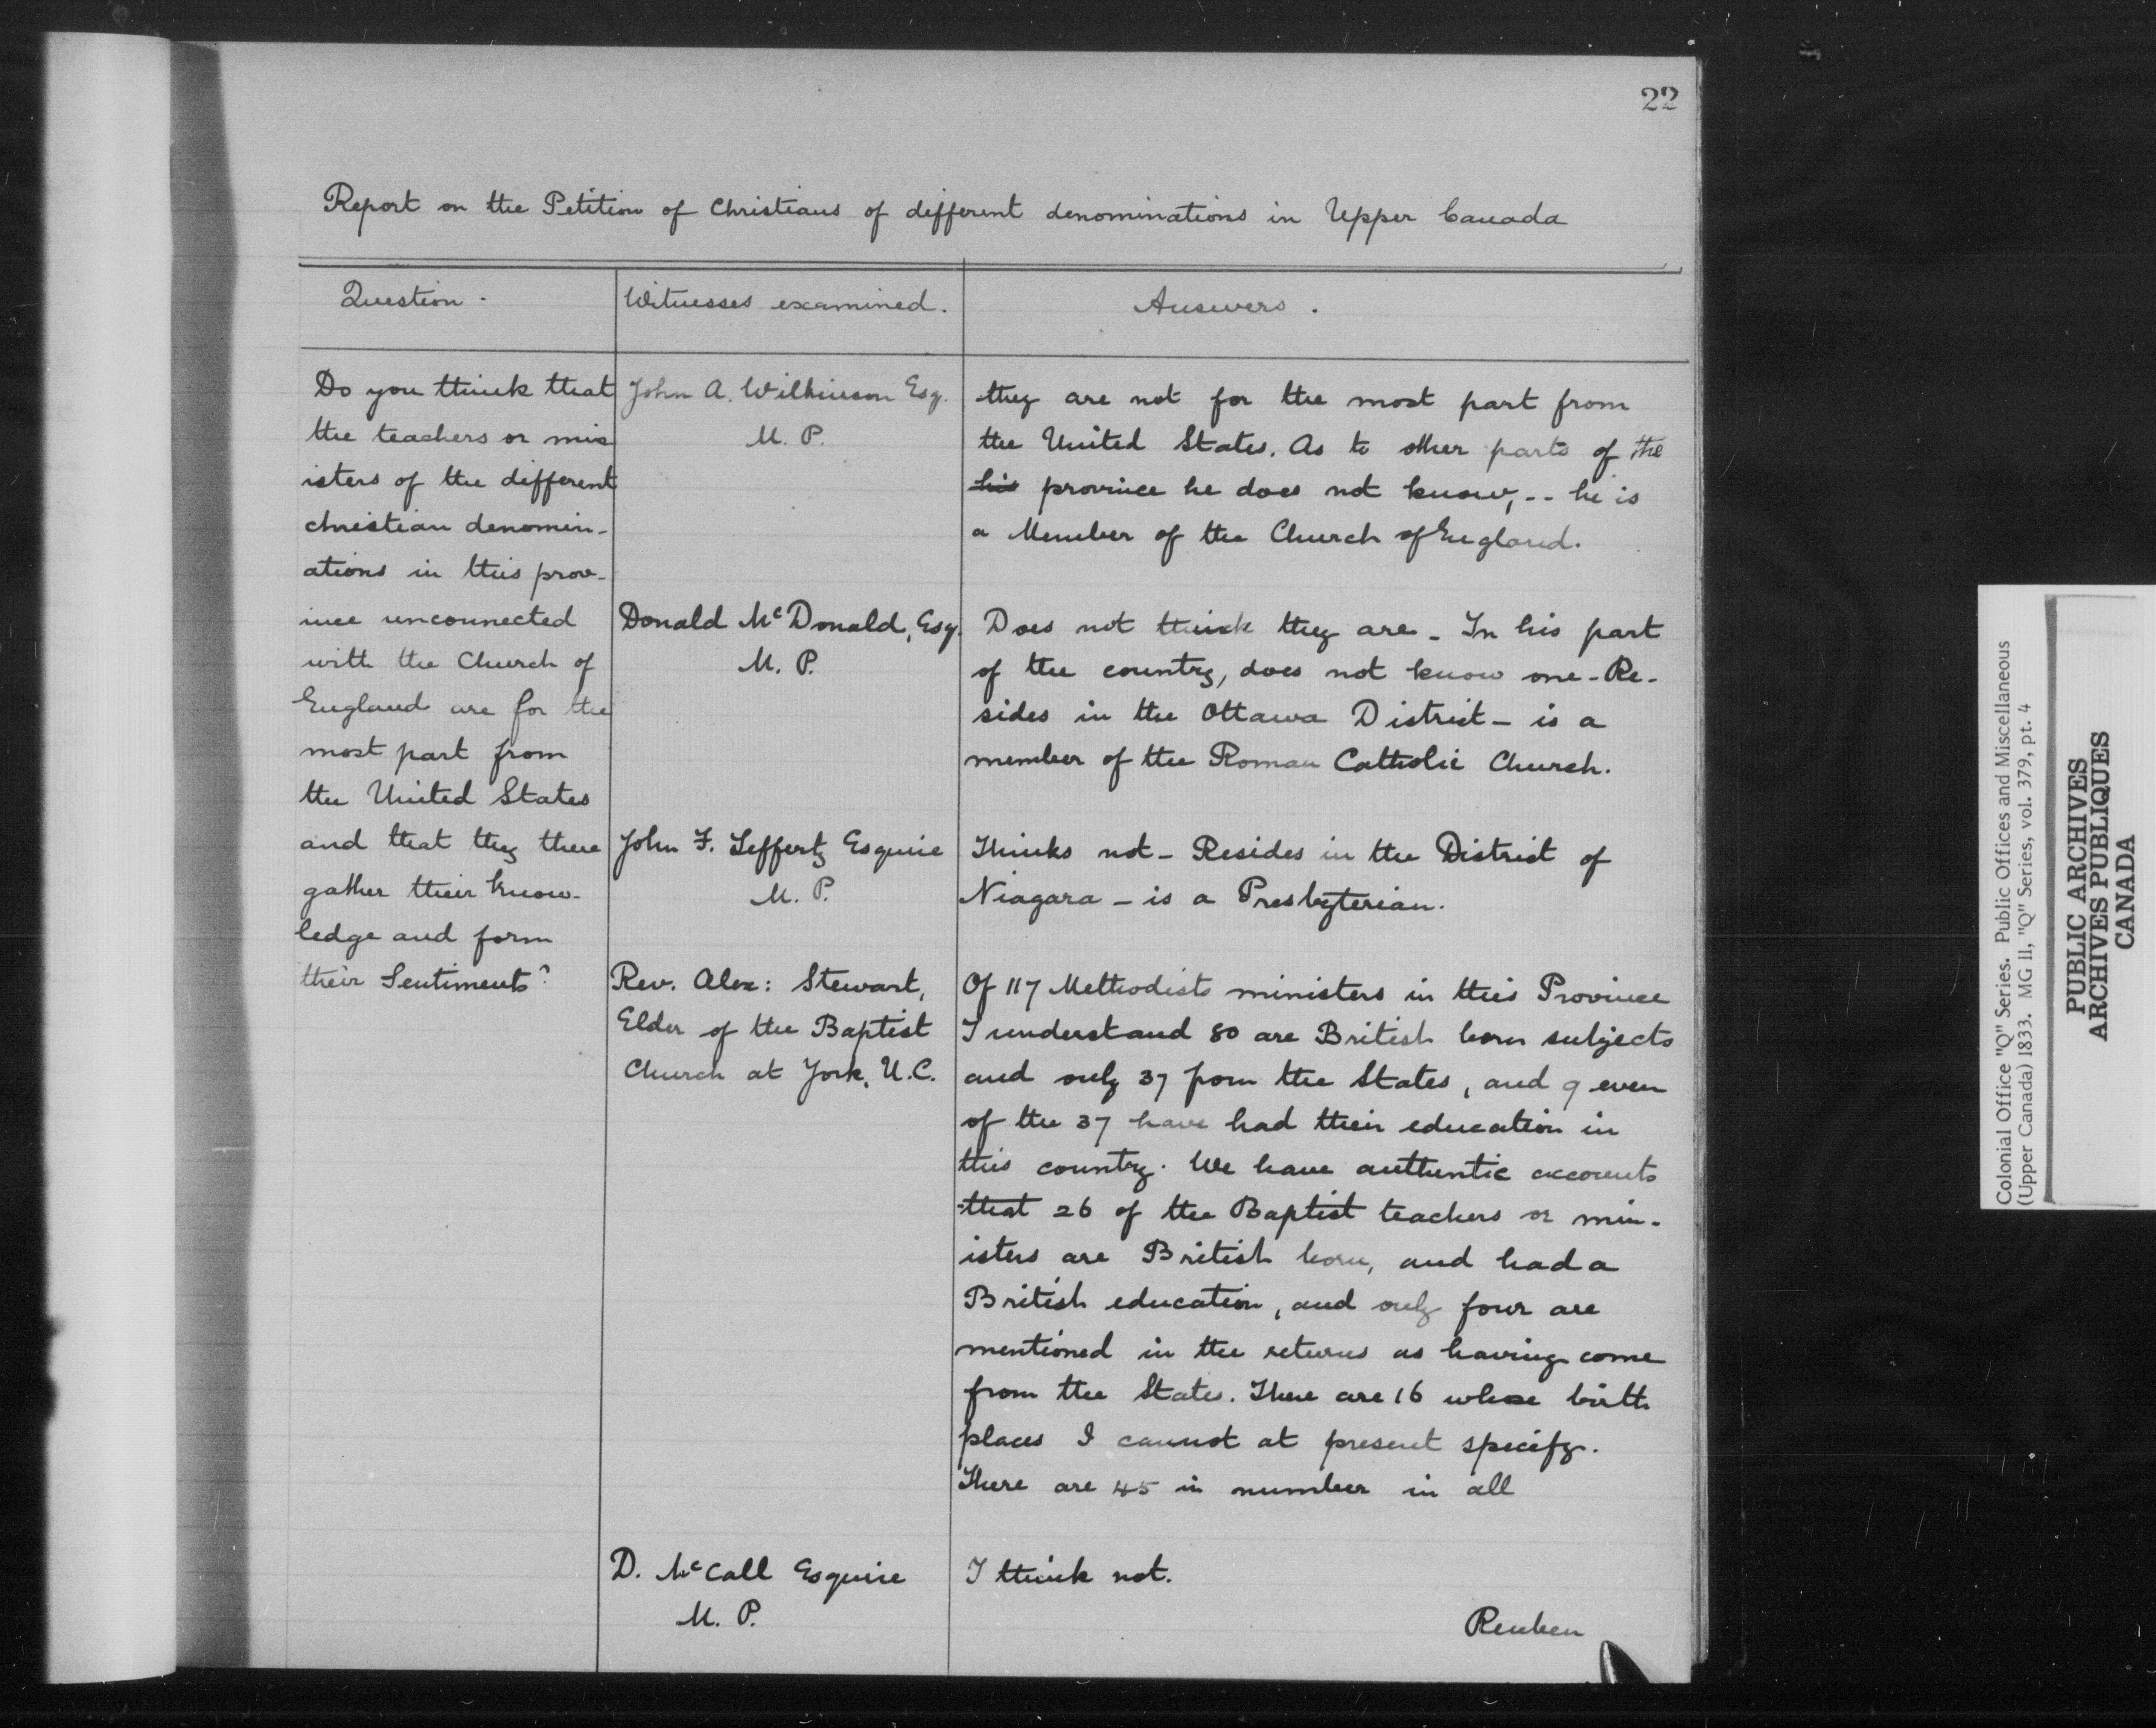 22
Report on the Petition of Christians of different denominations in Upper Canada
Question.
Witnesses examined.
Answers.
Do you think that
the teachers or min
isters of the different
christian denomin-
ations in this prov-
ince unconnected
with the Church of
England are for the
most part from
the United States
and that they there
gather their know-
ledge and form
their Sentiments?
John A. Wilkinson Esq.
M. P.
they are not for the most part from
the United States. As to other parts of the
his province he does not know, -- he is
a Member of the Church of England.
Donald McDonald, Esq.
M. P.
Does not think they are - In his part
of the country, does not know one - Re-
sides in the Ottawa District - is a
member of the Roman Catholic Church.
John F. Lefferty Esquire
M. P.
Thinks not - Resides in the District of
Niagara - is a Presbyterian.
Rev. Alex: Stewart,
Elder of the Baptist
Church at York, U.C.
Of 117 Methodists ministers in this Province
I understand 80 are British born subjects
and only 37 from the States, and 9 even
of the 37 have had their education in
this country. We have authentic accounts
that 26 of the Baptist teachers or min-
isters are British born, and had a
British education, and only four are
mentioned in the returns as having come
from the States. There are 16 whose birth
places I cannot at present specify.
There are 45 in number in all
D. McCall Esquire
M. P.
I think not.
Reuben
Colonial Office "Q" Series. Public Offices and Miscellaneous
(Upper Canada) 1833. MG 11, "Q" Series, vol. 379, pt. 4
PUBLIC ARCHIVES
ARCHIVES PUBLIQUES
CANADA